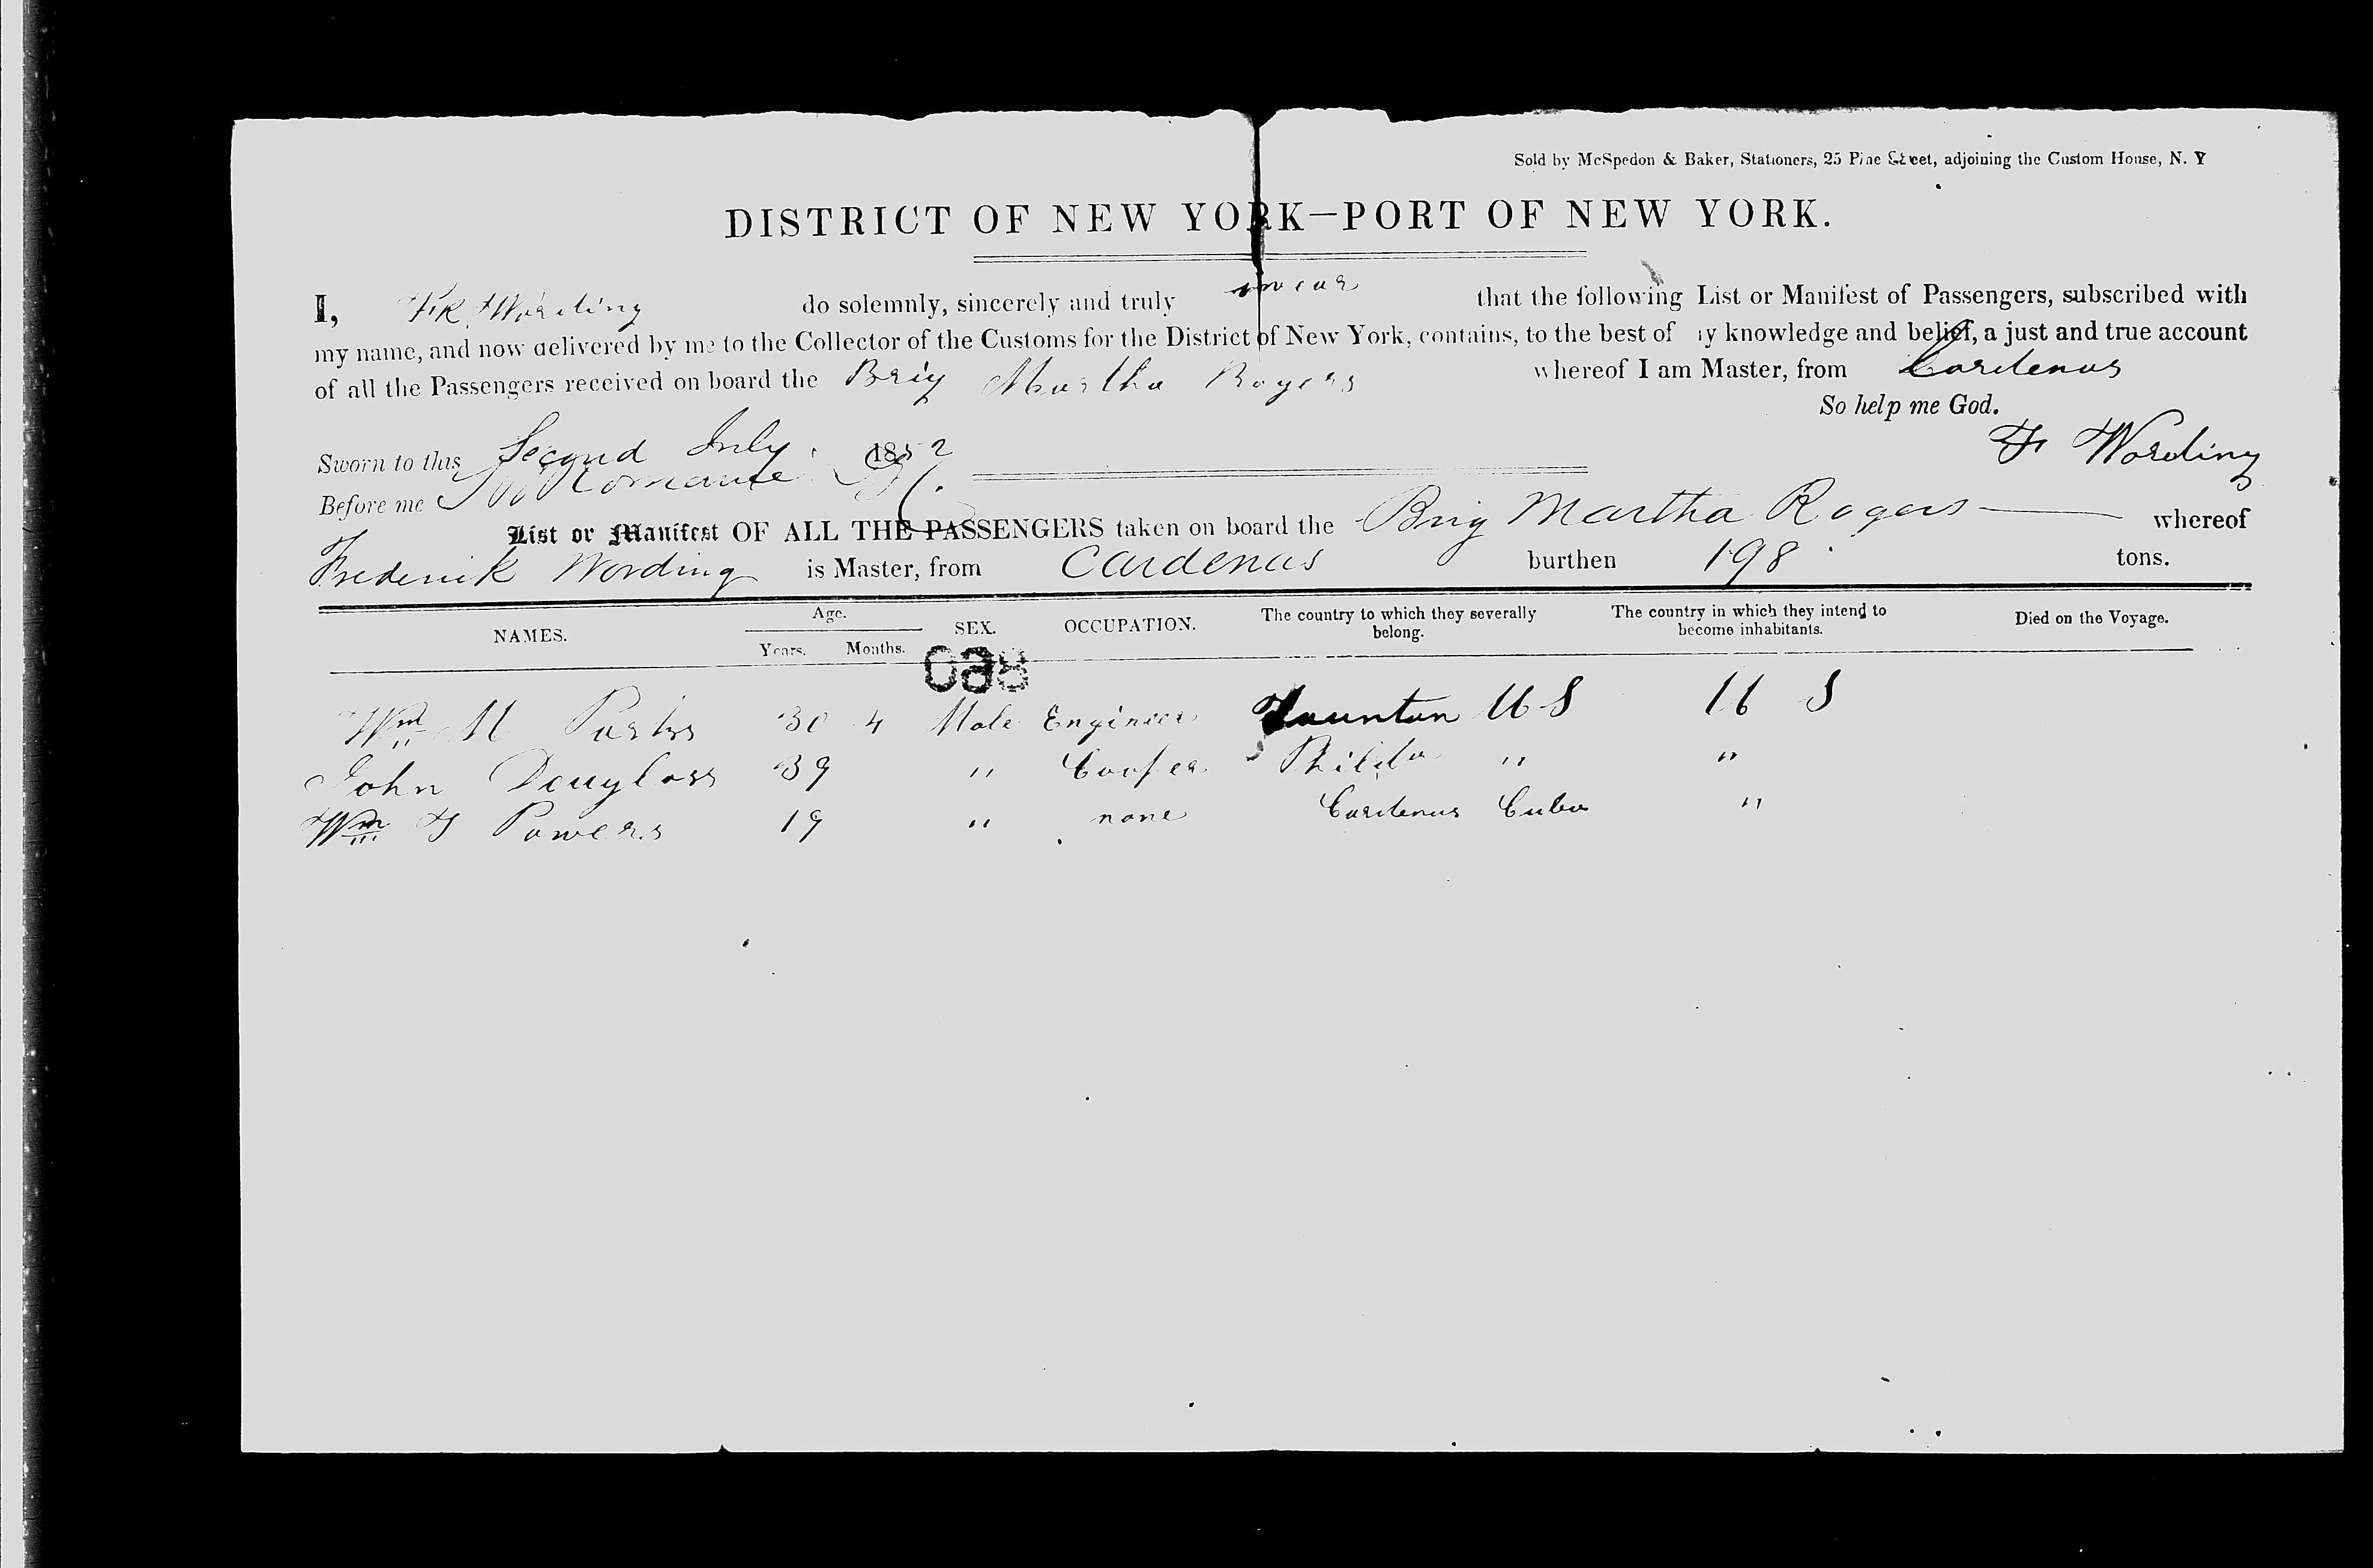 Sold by McSpedon & Baker, Stationers, 25 Pine Street, adjoining the Custom House, N. Y
DISTRICT OF NEW YORK—PORT OF NEW YORK.
I, Fk Wording do solemnly, sincerely and truly swear that the following List or Manifest of Passengers, subscribed with
my name, and now delivered by me to the Collector of the Customs for the District of New York, contains, to the best of my knowledge and belief, a just and true account
of all the Passengers received on board the Brig Martha Rogers whereof I am Master, from Cardenas
So help me God.
Sworn to this Second July 1852 F Wording
Before me
List or Manifest OF ALL THE PASSENGERS taken on board the Brig Martha Rogers whereof
Frederick Wording is Master, from Cardenas burthen 198 tons.
NAMES. Age. Years. Months. SEX. OCCUPATION. The country to which they severally belong. The country in which they intend to become inhabitants. Died on the Voyage.
Wm M 30 4 Male Engineer Taunton U S U S
John Douglass 39 " Cooper Philda " "
Wm F Powers 19 " none Cardenas Cuba "